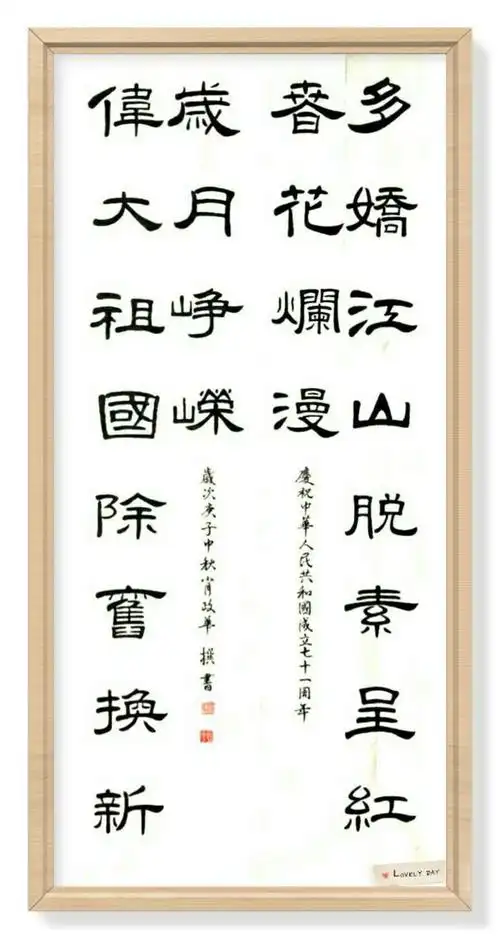 多嬌江山脱素呈紅
春花爛漫
慶祝中華人民共和國成立七十一周年
歲月崢嶸
歲次庚子中秋肖政華撰書
偉大祖國除舊換新
LOVELY DAY